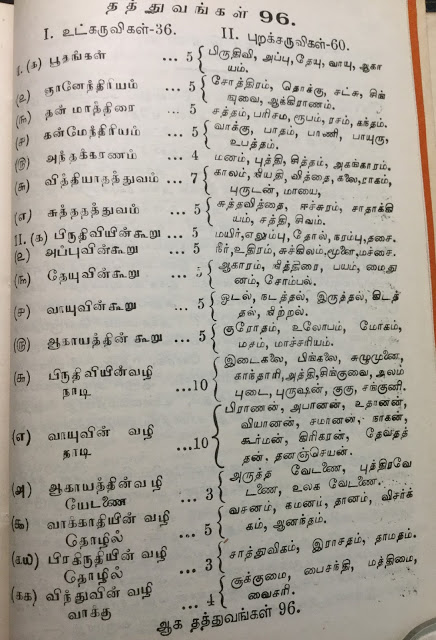 தத்துவங்கள் 96.
I. உட்கருவிகள்-36. II. புறக்கருவிகள்-60.
I. (க) பூதங்கள் ... 5 { பிருதிவி, அப்பு, தேயு, வாயு, ஆகா
யம்.
(உ) ஞானேந்திரியம் ... 5 { சோத்திரம், தொக்கு, சட்சு, சிங்
ஙுவை, ஆக்கிராணம்.
(ங) தன் மாத்திரை ... 5 சத்தம், பரிசம, ரூபம், ரசம், கந்தம்.
(ச) கன்மேந்திரியம் ... 5 { வாக்கு, பாதம், பாணி, பாயுரு,
உபத்தம்.
(ரு) அந்தக்காணம் ... 4 மனம், புத்தி, சித்தம், அகங்காரம்.
(சு) வித்தியாதத்துவம் ... 7 { காலம், நியதி, வித்தை, கலை, ராகம்,
புருடன், மாயை,
(எ) சுத்ததத்துவம் ... 5 { சுத்தவித்தை, ஈச்சுரம், சாதாக்கி
யம், சத்தி, சிவம்.
II. (க) பிருதிவியின்கூறு ... 5 மயிர், எலும்பு, தோல், நரம்பு, தசை.
(உ) அப்புவின்கூறு ... 5 நீர், உதிரம், சுக்கிலம், மூளை, மச்சை.
(ங) தேயுவின்கூறு ... 5 { ஆகாரம், நித்திரை, பயம், மைது
னம், சோம்பல்.
(ச) வாயுவின்கூறு ... 5 { ஓடல், நடத்தல், இருத்தல், கிடத்
தல், நிற்றல்.
(ரு) ஆகாயத்தின் கூறு ... 5 { குரோதம், உலோபம், மோகம்,
மதம், மாச்சரியம்.
(சு) பிருதிவியின்வழி
நாடி ... 10 { இடைகலை, பிங்கலை, சுழுமுனை,
காந்தாரி, அத்தி, சிங்குவை, அலம்
புடை, புருஷன், குகு, சங்குனி.
(எ) வாயுவின் வழி
நாடி ... 10 { பிராணன், அபானன், உதானன்,
வியானன், சமானன், நாகன்,
கூர்மன், கிரிகரன், தேவதத்
தன், தனஞ்செயன்.
(அ) ஆகாயத்தின்வழி
யேடணை ... 3 { அருத்த வேடணை, புத்திரவே
டணை, உலக வேடணை.
(கூ) வாக்காதியின் வழி
தொழில் ... 5 { வசனம், கமனம், தானம், விசர்க்
கம், ஆனந்தம்.
(கய) பிரகிருதியின் வழி
தொழில் ... 3 { சாத்துவிதம், இராசதம், தாமதம்.
(கக) விந்துவின் வழி
வாக்கு ... 4 { சூக்குமை, பைசந்தி, மத்திமை,
வைசரி.
ஆக தத்துவங்கள் 96.